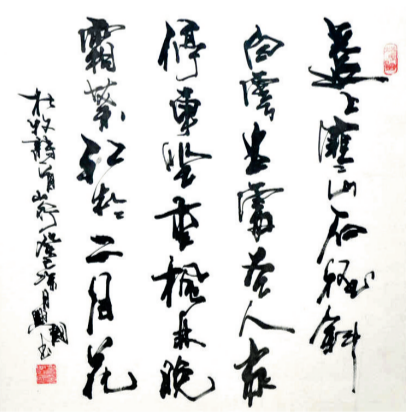 遠上寒山石徑斜
白雲生處有人家
停車坐愛楓林晚
霜葉紅於二月花
杜牧詩一首山行癸巳月書